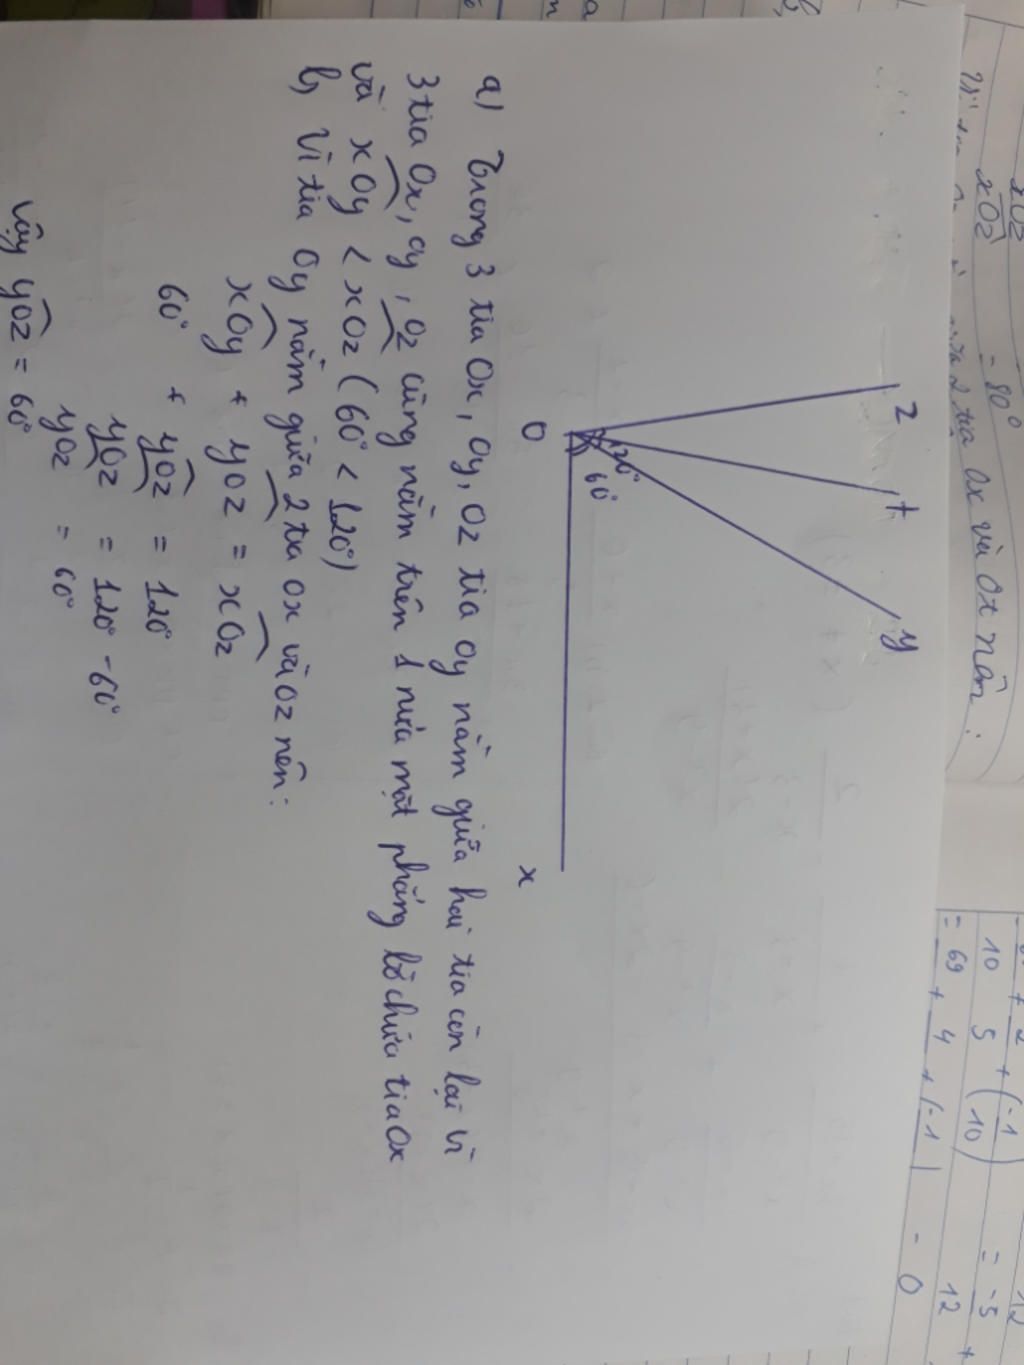 xOz
xOz = 80°
2 tia Ox và Ot nên:
z
t
y
120°
60°
O
x
a) Trong 3 tia Ox, Oy, Oz tia Oy nằm giữa hai tia còn lại vì
3 tia Ox, Oy, Oz cùng nằm trên 1 nửa mặt phẳng bờ chứa tia Ox
và xOy < xOz (60° < 120°)
b, Vì tia Oy nằm giữa 2 tia Ox và Oz nên:
xOy + yOz = xOz
60° + yOz = 120°
yOz = 120° - 60°
yOz = 60°
Vậy yOz = 60°
10 5 (10) 12
= 69 + 4 + (-1) - 0